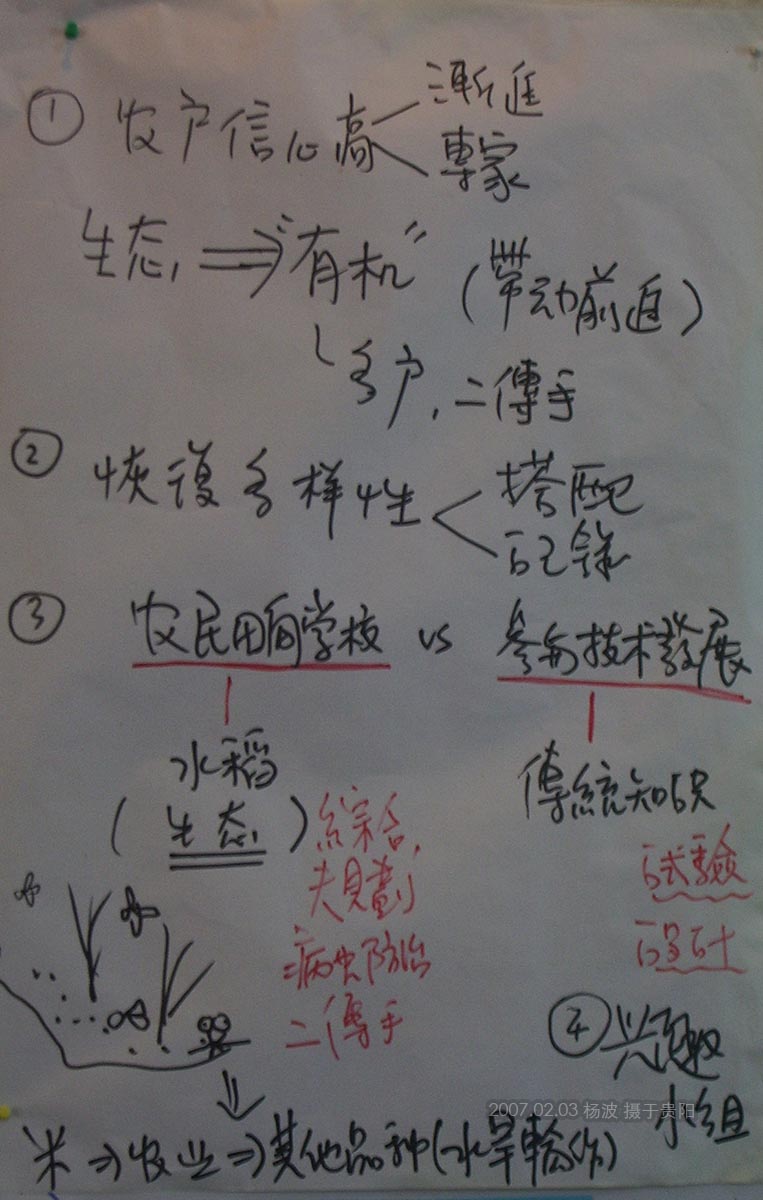 ① 农户信心高 漸進
專家
生态 ⇒ "有机" (帶动前進)
多户, 二傳手
② 恢復多样性 搭配
記錄
③ 农民田间学校 vs 參与技术發展
水稻 傳統知识
(生态) 綜合, 試驗
規劃 設計
病虫防治
二傳手
④ 兴趣
小组
2007.02.03 杨波 摄于贵阳
米 ⇒ 农业 ⇒ 其他品种(水旱輪作)